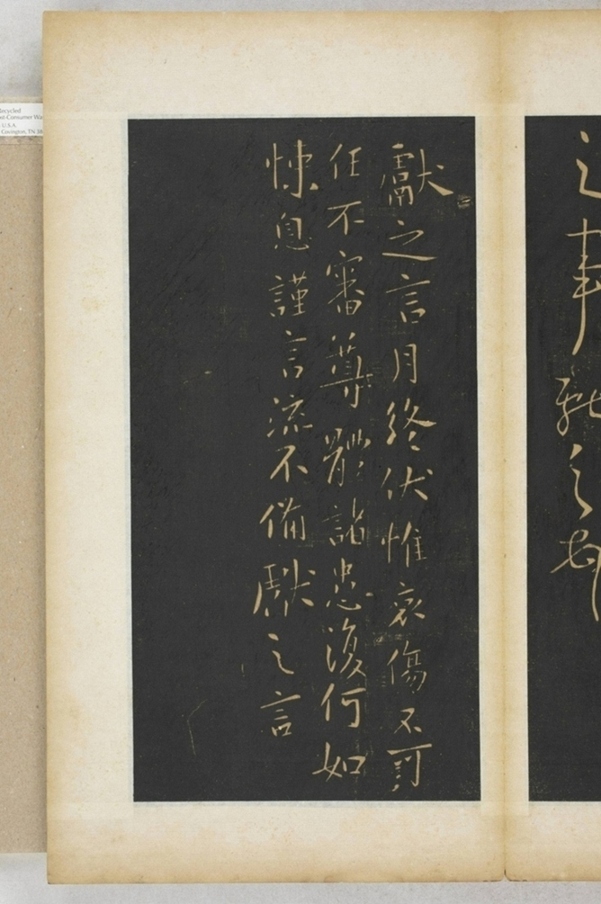 之事執之教
獻之言月終伏惟哀傷不可
任不審尊體諸患復何如
悚息謹言流不備獻之言
Recycled
U.S.A.
Covington, TN 38